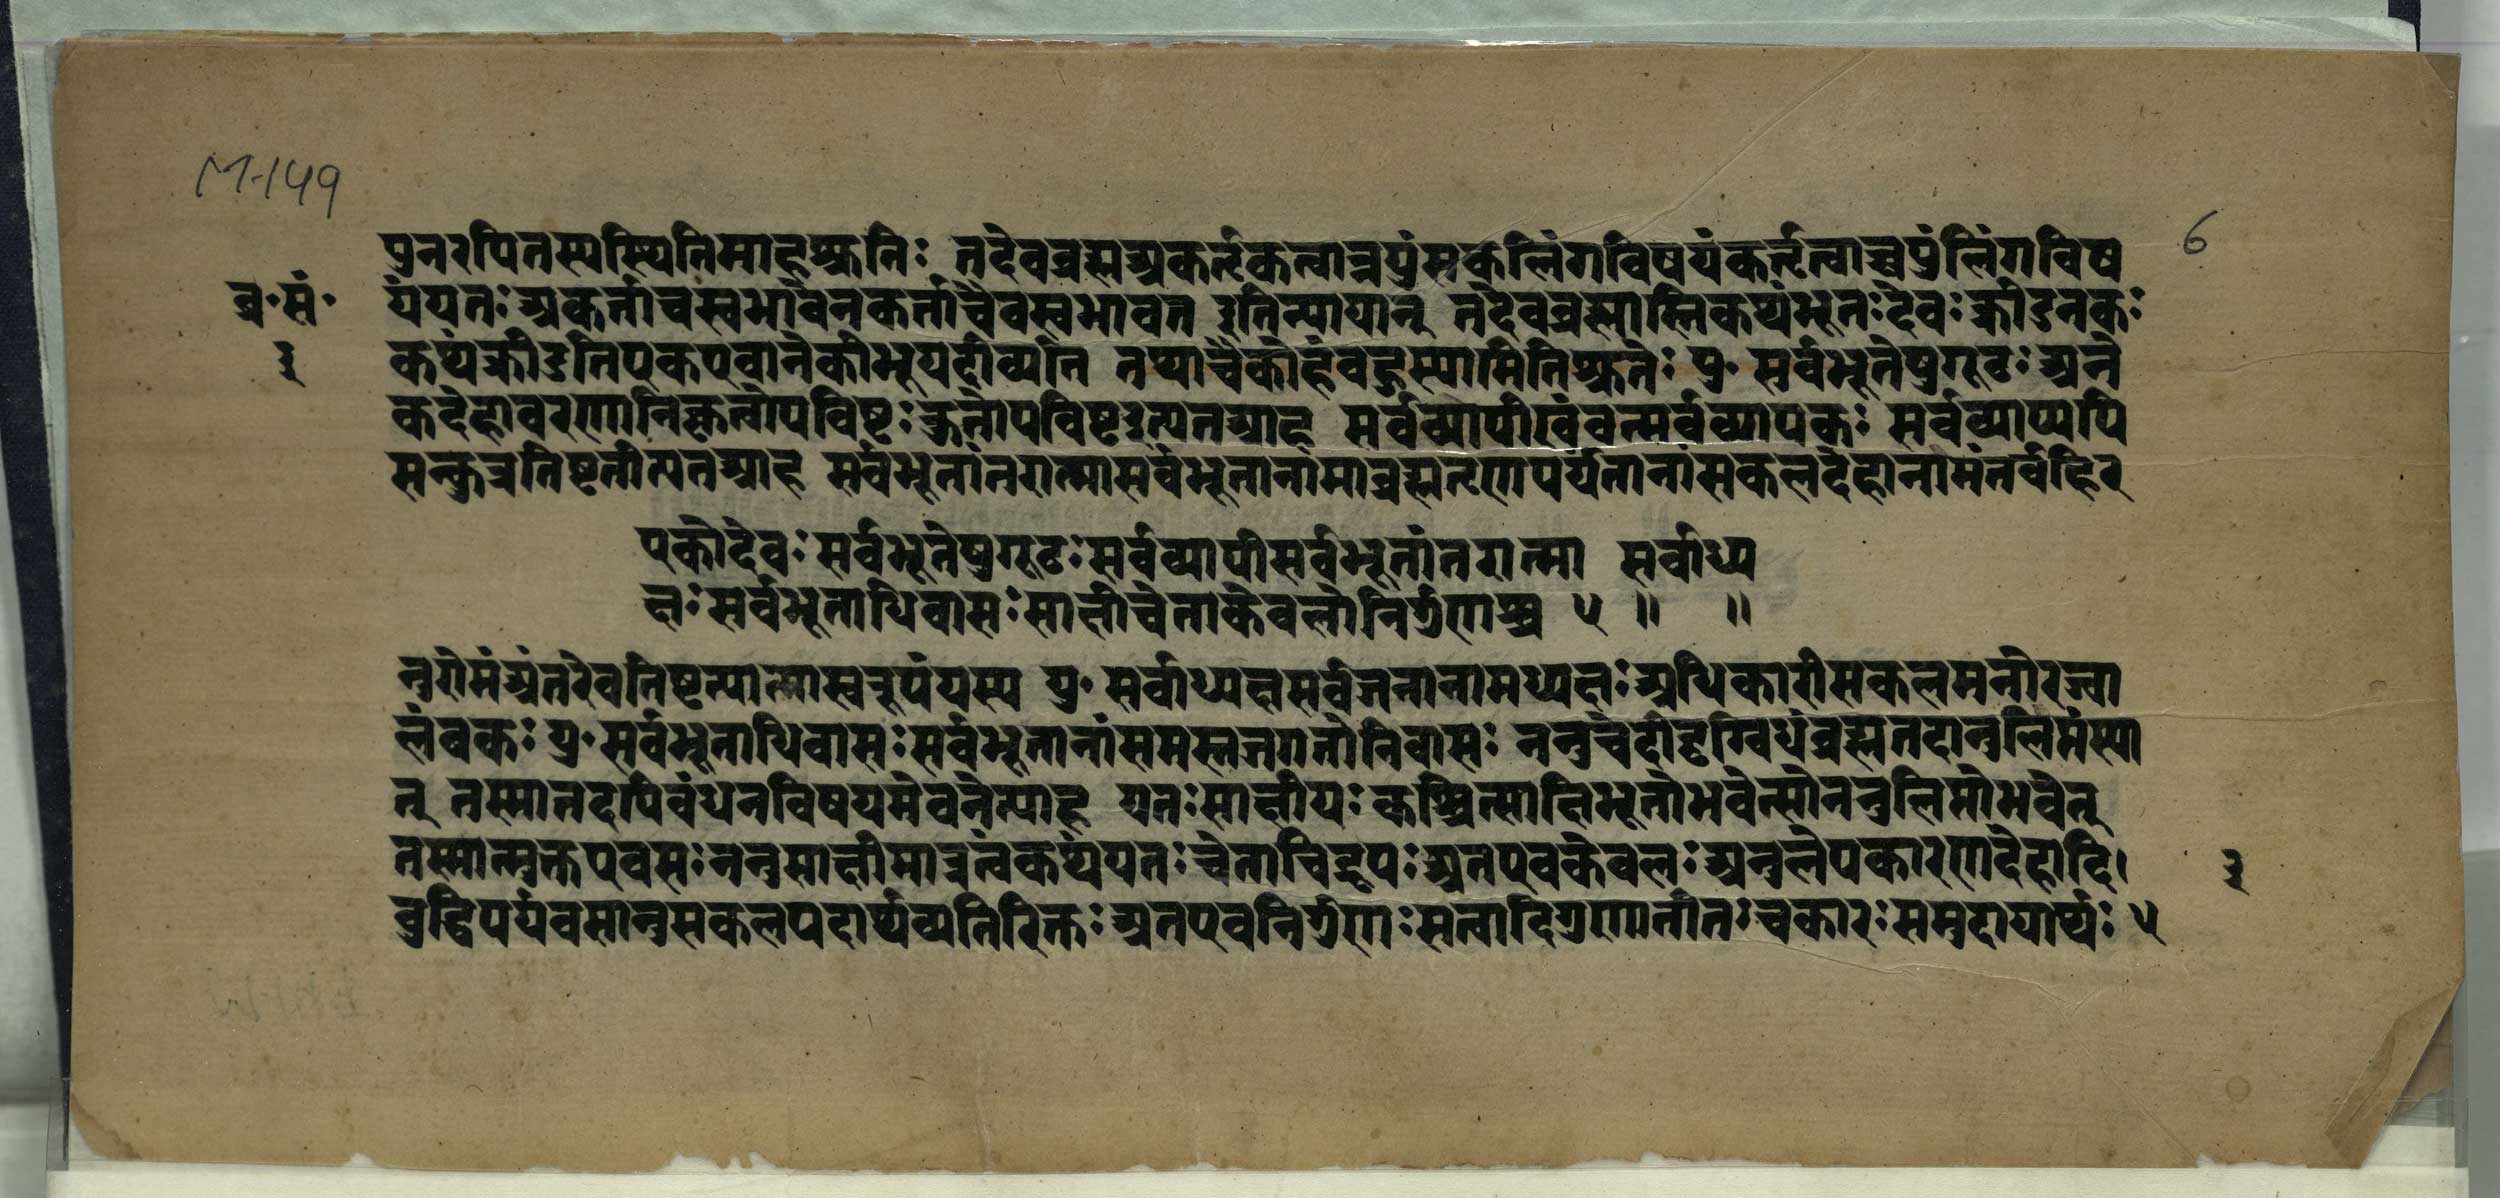 M-149
6
पुनरपितस्यस्थितिमाहश्रुतिः तदेवब्रह्मअकर्तृकत्वान्नपुंसकलिंगविषयंकर्तृत्वाच्चपुंलिंगविष
ब्र॰सं॰
यंयतः अकर्ताचस्वभावेनकर्ताचैवस्वभावत इतिन्यायात् तदेवब्रह्मास्तिकथंभूतःदेवःक्रीडनकः
३
कथंक्रीडतिएकएवानेकीभूयदीव्यति तथाचैकोहंबहुस्यामितिश्रुतेः पु॰ सर्वभूतेषुगूढः अने
कदेहावरणानिकृत्वोपविष्टः कुतोपविष्टइत्यतआह सर्वव्यापीखंवत्सर्वव्यापकः सर्वव्याप्यपि
सन्कुत्रतिष्टतीत्यतआह सर्वभूतांतरात्मासर्वभूतानांमाब्रह्मतृणपर्यंतानांसकलदेहानामंतर्बहिर्
एकोदेवःसर्वभूतेषुगूढःसर्वव्यापीसर्वभूतांतरात्मा सर्वाध्य
क्षःसर्वभूताधिवासःसाक्षीचेताकेवलोनिर्गुणश्च ५ ॥ ॥
नुरोमंअंतरेवतिष्टत्यात्मास्वरूपंयस्य पु॰ सर्वाध्यक्षसर्वजनानामध्यक्षःअधिकारीसकलमनोरज्वा
लंबकः पु॰ सर्वभूताधिवासःसर्वभूतानांसमस्तजगतोनिवासः ननुचेदीदृग्विधंब्रह्मतदानुलिप्तंस्या
त् तस्मात्तदपिबंधनविषयमेवनेत्याह यतःसाक्षीयः कश्चित्साक्षिभूतोभवेत्सोननुलिप्तोभवेत्
तस्मान्मुक्तएवसःननुसाक्षीमात्रत्वंकथंयतः चेताचिद्रूपः अतएवकेवलः अनुलेपकारणदेहादि।
३
बुद्धिपर्यवसानुसकलपदार्थव्यतिरिक्तः अतएवनिर्गुणः सत्वादिगुणातीतःचकारःसमुदायार्थः ५